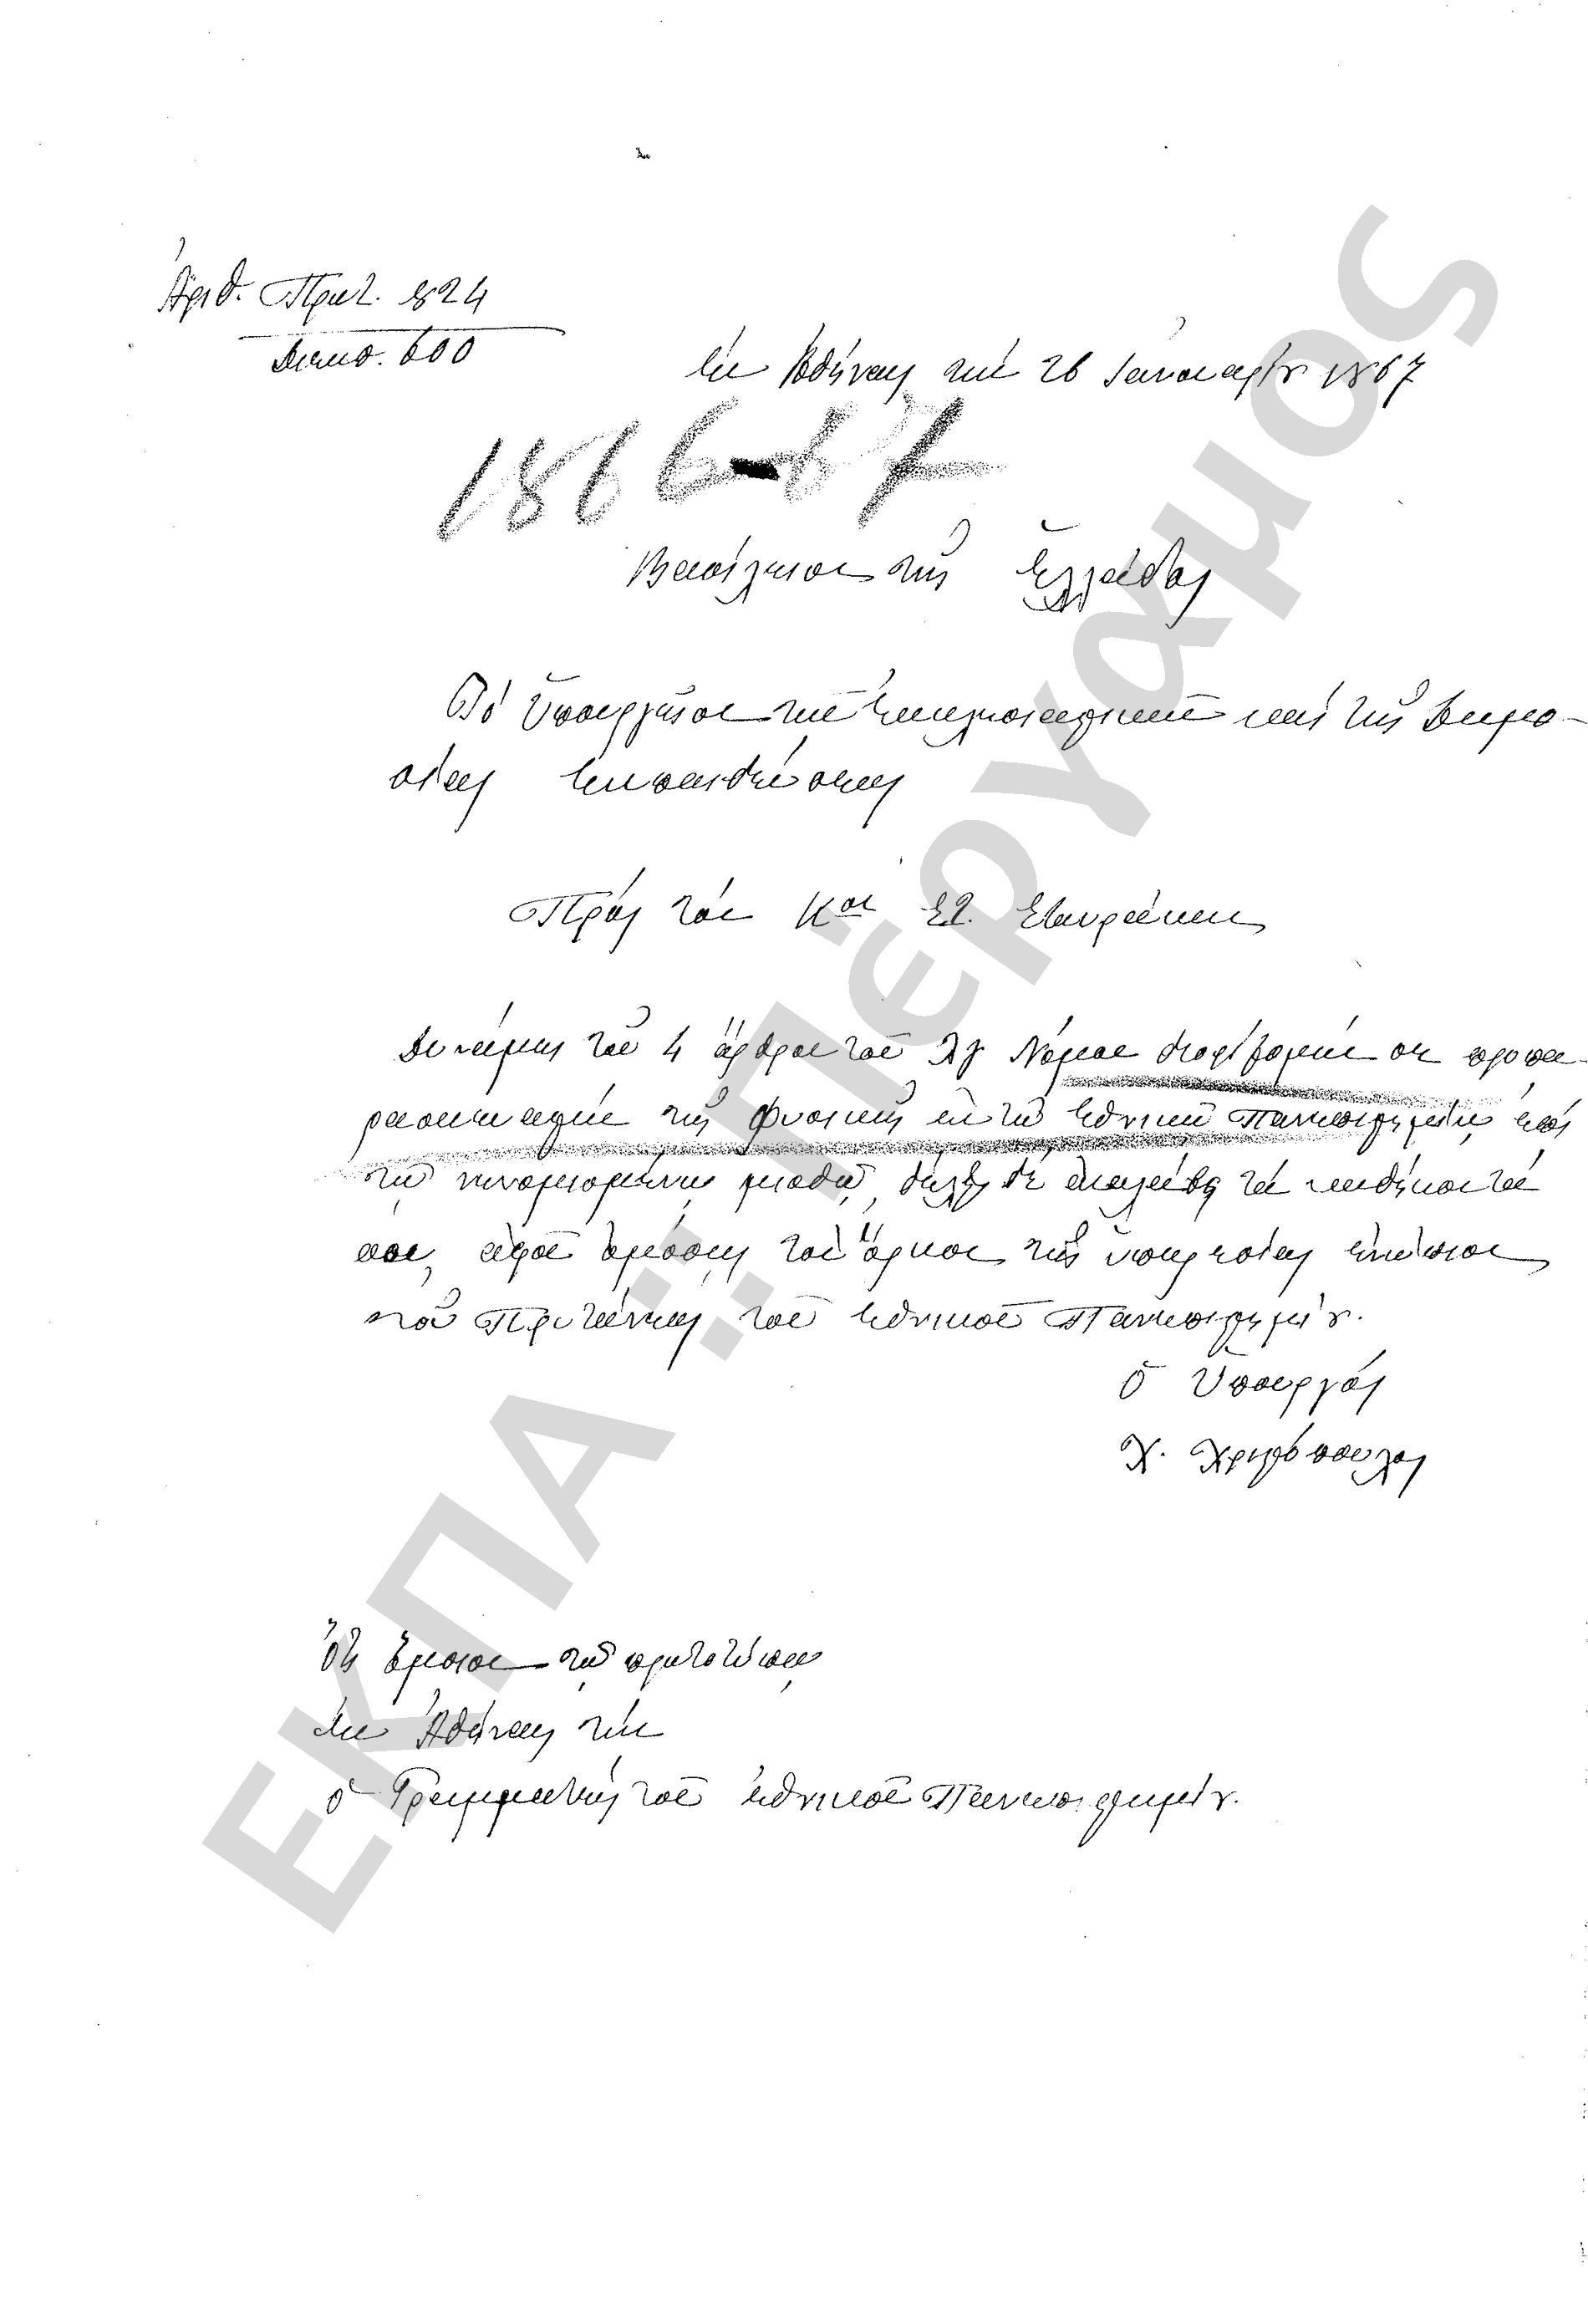 Ἀριθ. Πρωτ. 824
Διεκπ. 600
Ἐν Ἀθήναις τὴν 26 Ἰανουαρίου 1867
1866-67
Βασίλειον τῆς Ἑλλάδος
Τὸ Ὑπουργεῖον τῶν Ἐκκλησιαστικῶν καὶ τῆς Δημο-
σίας Ἐκπαιδεύσεως
Πρὸς τὸν Κον Στ. Σταυράκην
Δυνάμει τοῦ 4 ἄρθρου τοῦ Νόμου διορίζομέν σε προπα-
ρασκευαστὴν τῆς Φυσικῆς ἐν τῷ Ἐθνικῷ Πανεπιστημίῳ ἐπὶ
τῷ νενομισμένῳ μισθῷ, θέλεις δὲ ἀναλάβῃ τὰ καθήκοντά
σου, ἀφοῦ ὀμόσῃς τὸν ὅρκον τῆς ὑπηρεσίας ἐνώπιον
τοῦ Πρυτάνεως τοῦ Ἐθνικοῦ Πανεπιστημίου.
Ὁ Ὑπουργός
Χ. Χριστόπουλος
Ὅτι ὅμοιον τῷ πρωτοτύπῳ
Ἐν Ἀθήναις τὴν
ὁ Γραμματεὺς τοῦ Ἐθνικοῦ Πανεπιστημίου.
ΕΚΠΑ :: Πέργαμος